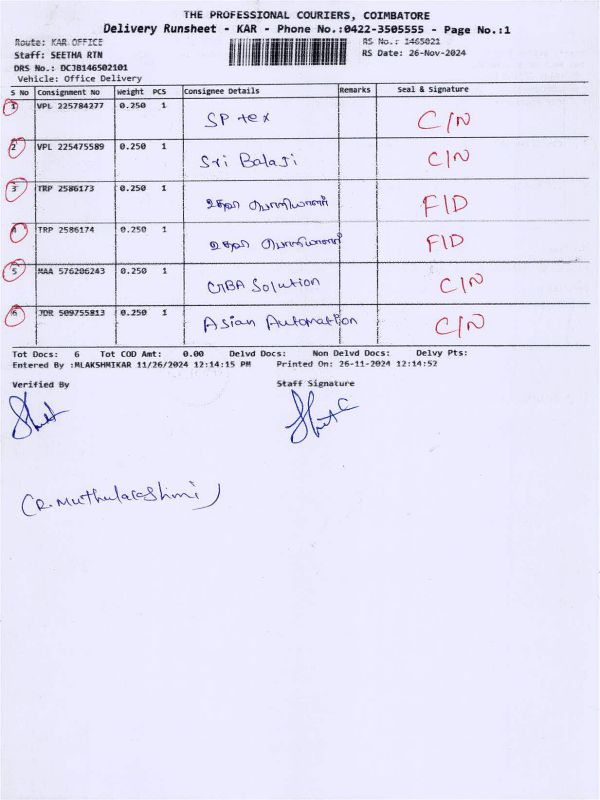 THE PROFESSIONAL COURIERS, COIMBATORE
Delivery Runsheet - KAR - Phone No.:0422-3505555 - Page No.:1
Route: KAR OFFICE RS No.: 1465021
Staff: SEETHA RTN RS Date: 26-Nov-2024
DRS No.: DCJB146502101
Vehicle: Office Delivery
S No Consignment No Weight PCS Consignee Details Remarks Seal & Signature
1 VPL 225784277 0.250 1 SP tex C/N
2 VPL 225475589 0.250 1 Sri Balaji C/N
3 TRP 2586173 0.250 1 உதவி பொறியாளர் F/D
4 TRP 2586174 0.250 1 உதவி பொறியாளர் F/D
5 MAA 576206243 0.250 1 Solution C/N
6 JDR 509755813 0.250 1 Asian Automation C/N
Tot Docs: 6 Tot COD Amt: 0.00 Delvd Docs: Non Delvd Docs: Delvy Pts:
Entered By :MLAKSHMIKAR 11/26/2024 12:14:15 PM Printed On: 26-11-2024 12:14:52
Verified By Staff Signature
(R. Muthulakshmi)